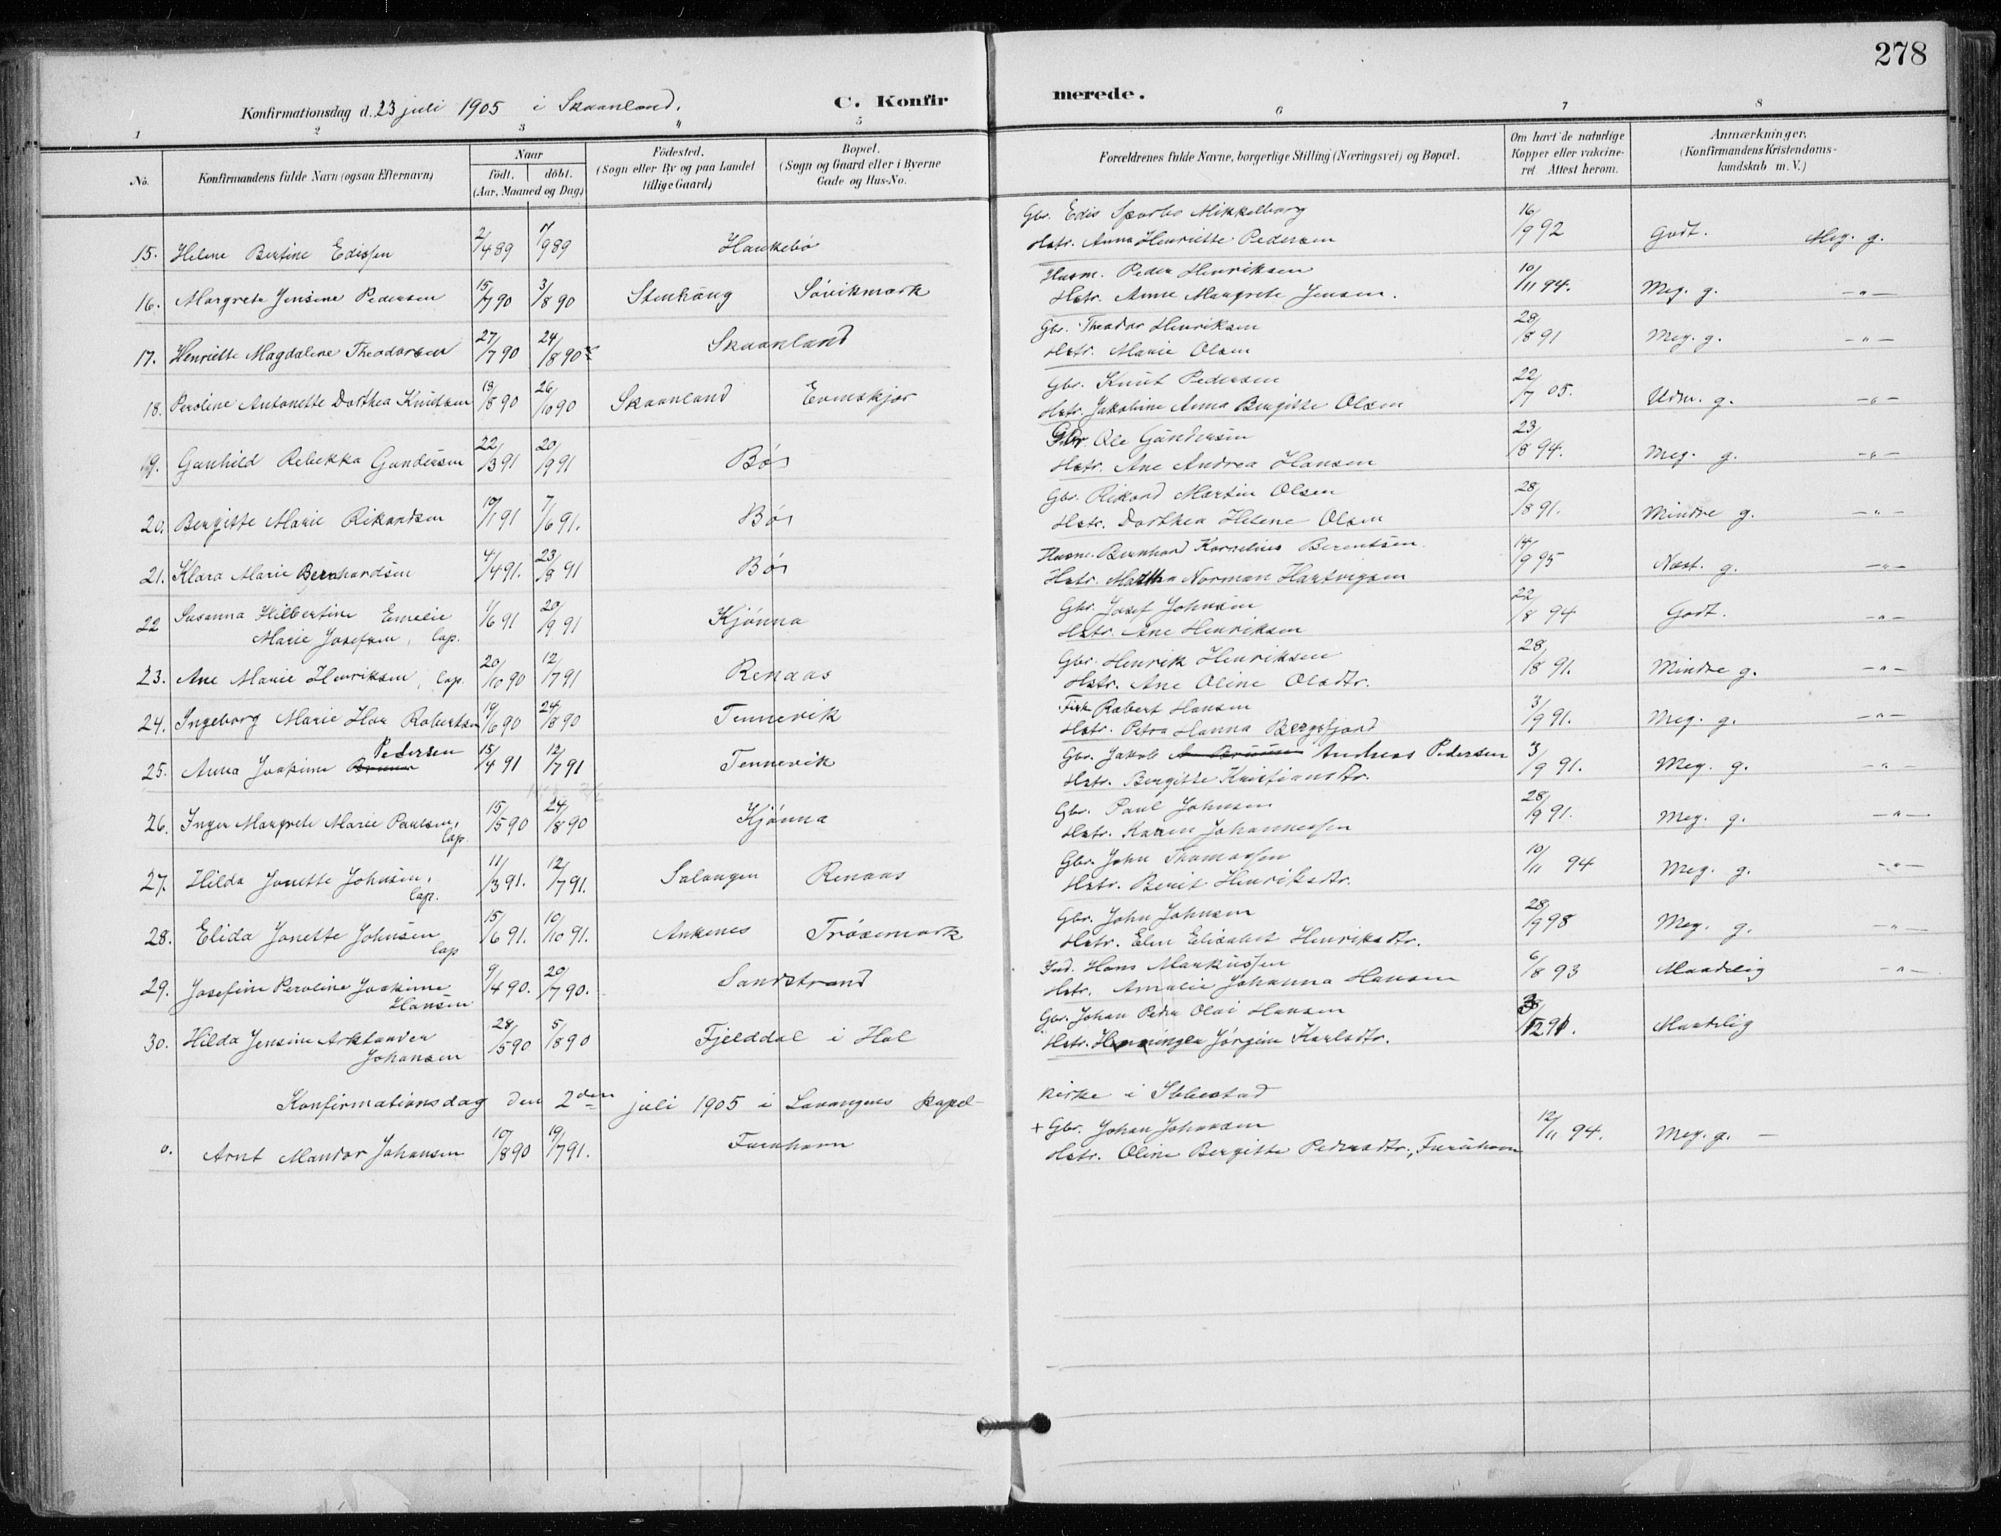 278
Konfirmationsdag d. 23 juli 1905 i Skaanland.
C. Konfirmerede.
1 2 3 4 5 6 7 8
No.
Konfirmandens fulde Navn (ogsaa Efternavn)
Naar
født. døbt.
(Aar, Maaned og Dag)
Fødested.
(Sogn eller By og paa Landet
tillige Gaard)
Bopæl.
(Sogn og Gaard eller i Byerne
Gade og Hus-No.
Forældrenes fulde Navne, borgerlige Stilling (Næringsvei) og Bopæl.
Om havt de naturlige
Kopper eller vakcine-
ret. Attest herom.
Anmærkninger.
(Konfirmandens Kristendoms-
kundskab m. V.)
Gbr. Edis Sparbo Mikkelborg
15. Helene Bertine Edissen 2/4 89 17/9 89 Haukebø Hstr. Anna Henriette Pedersen 16/9 92 Godt. Meg. g.
Husm. Peder Henriksen
16. Margrete Jensine Pedersen 15/7 90 3/8 90 Stenhaug Sørvikmark Hstr. Anne Margrete Jensen. 10/11 94. Meg. g. -"-
Gbr. Theodor Henriksen
17. Henriette Magdalene Theodorsen 27/7 90 24/8 90 Skaanland Hstr. Marie Olsen 28/8 91 Meg. g. -"-
Gbr. Knut Pedersen
18. Peroline Antonette Dorthea Knudsen 18/8 90 26/10 90 Skaanland Evenskjer Hstr. Jakobine Anna Bergitte Olsen 22/7 05. Udm. g. -"-
Gbr. Ole Gundersen
19. Gunhild Rebekka Gundersen 22/3 91 20/9 91 Bø Hstr. Ane Andrea Hansen 23/8 94. Meg. g. -"-
Gbr. Rikard Martin Olsen
20. Bergitte Marie Rikardsen 10/1 91 7/6 91. Bø Hstr. Dorthea Helene Olsen 28/8 91. Mindre g. -"-
Husm. Bernhard Kornelius Berentsen
21. Klara Marie Bernhardsen 4/4 91. 23/8 91 Bø Hstr. Martha Norman Hartvigsen 14/9 95 Næst. g. -"-
Gbr. Josef Johnsen
22 Susanna Hilbertine Emelie 1/6 91 20/9 91 Kjønna
Marie Josefsen, lap. Hstr. Ane Henriksen 22/8 94 Godt. -"-
Gbr. Henrik Henriksen
23. Ane Marie Henriksen, lap. 20/10 90 12/7 91 Renaas Hstr. Ane Oline Olsdtr. 28/8 91. Mindre g. -"-
Fisk Robert Hansen
24. Ingeborg Marie Hoe Robertsen 19/6 90 24/8 90 Tennevik Hstr. Petra Hanna Bergsfjord 3/9 91. Meg. g. -"-
Pedersen Gbr. Jakob Andreas Pedersen
25. Anna Joakime 15/4 91 12/7 91 Tennevik Hstr. Bergitte Kristiansdtr. 13/9 91. Meg. g. -"-
Gbr. Paul Johnsen
26. Inger Margrete Marie Paulsen, 15/5 90 24/8 90 Kjønna
lap. Hstr. Karen Johannessen 28/9 91. Meg. g. -"-
Gbr. John Thomassen
27. Hilda Jonette Johnsen, 11/3 91. 12/7 91. Salangen Renaas
lap. Hstr. Berit Henriksdtr. 10/11 94 Meg. g. -"-
Gbr. John Johnsen
28. Elida Jonette Johnsen 15/6 91. 10/10 91. Ankenes Trøsemark
lap Hstr. Elen Elisabet Henriksdtr. 28/9 98 Meg. g. -"-
Ind. Hans Markussen
29. Josefine Peroline Joakime 9/4 90. 20/7 90. Sandstrand
Hansen Hstr. Amalie Johanna Hansen 6/8 93 Maadelig -"-
Gbr. Johan Peder Olai Hansen
30. Hilda Jensine Arktander 28/5 90 5/8 90 Fjelddal i Hol
Johansen Hstr. Henninge Jørgine Karlsdtr. Maadelig
Konfirmationsdag den 2den juli 1905 i Lavangens kapel- kirke i Ibbestad
+ Gbr. Johan Johansen
0. Arnt Mandor Johansen 10/8 90 19/7 91. Furuhavn Hstr. Oline Bergitte Pedersdtr., Furuhavn 12/11 94. Meg. g. -